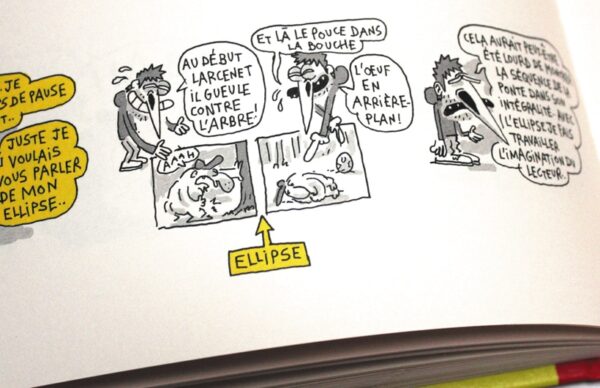 JE
DE PAUSE
JUSTE JE
VOULAIS
VOUS PARLER
DE MON
ELLIPSE..
AU DÉBUT
LARCENET
IL GUEULE
CONTRE
L'ARBRE!
ET LÀ LE POUCE DANS
LA BOUCHE
L'ŒUF
EN
ARRIÈRE-
PLAN!
AAAH
ELLIPSE
CELA AURAIT PEUT-ÊTRE
ÉTÉ LOURD DE MONTRER
LA SÉQUENCE DE LA
PONTE DANS SON
INTÉGRALITÉ. AVEC
L'ELLIPSE JE FAIS
TRAVAILLER
L'IMAGINATION DU
LECTEUR..